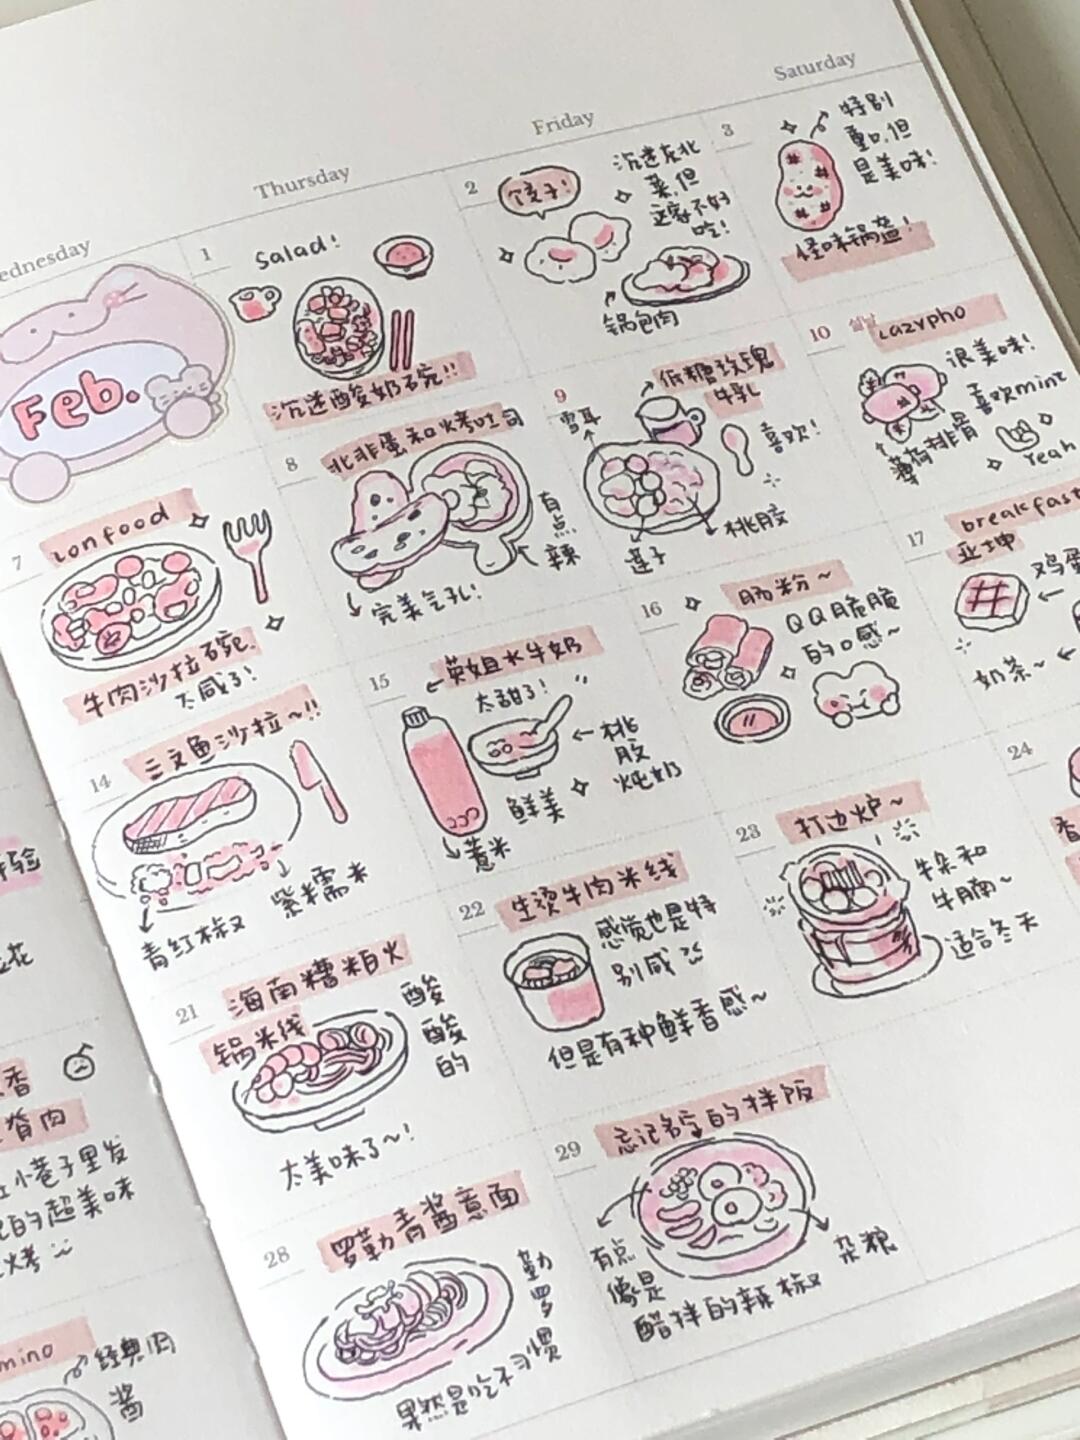 Thursday
Friday
Saturday
Feb.
1
salad!
沉迷酸奶石宛!!
2
饺子!
沉迷东北
菜,但
这家不好
吃!
锅包肉
3
特别
重口,但
是美味!
怪味锅盔!
7
zonfood
牛肉沙拉石宛.
太咸了!
8
北非蛋和烤吐司
有
点
辣
完美气孔!
9
低糖玫瑰
牛乳
雪耳
喜欢!
莲子
桃胶
10
설날
Lazypho
很美味!
喜欢mint
薄荷排骨
Yeah
14
三文鱼沙拉~!!
青红椒
紫糯米
15
英姐水牛奶
太甜了!
桃
胶
炖奶
鲜美
薏米
16
肠粉~
QQ脆脆
的口感~
17
breakfast
亚坤
鸡蛋
奶茶~
21
海南糟粕火
锅米线
酸
酸
的
太美味了~!
22
生烫牛肉米线
感觉也是特
别咸
但是有种鲜香感~
23
打边炉~
牛杂和
牛腩~
适合冬天
24
香
28
罗勒青酱意面
勒
罗
果然是吃不习惯
29
忘记名字的拌饭
有点
像是
醋拌的辣椒
杂粮
验
花
香
脊肉
小巷子里发
的超美味
烤
mino
经典肉
酱